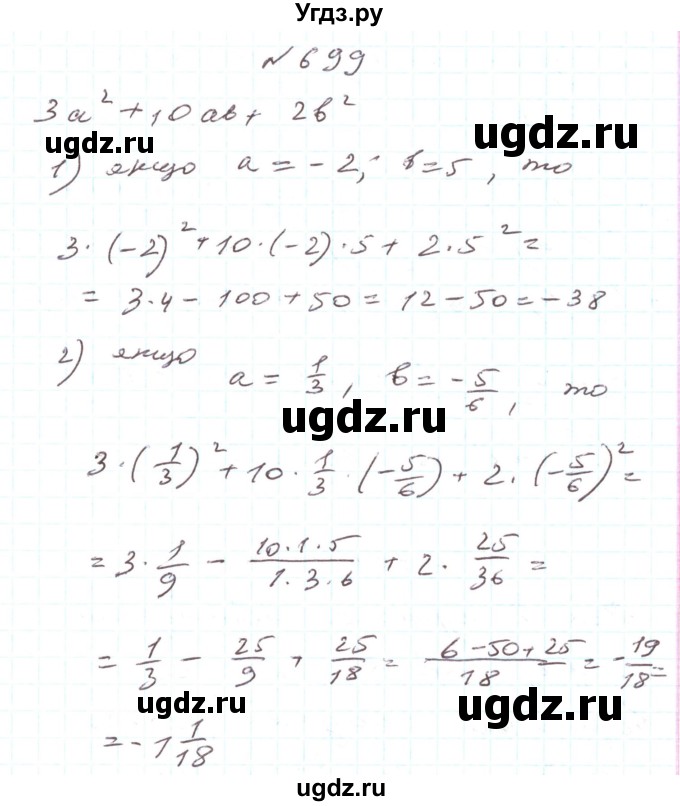 Угдз.ру
№699
3a² + 10ab + 2b²
ugdz.ru ugdz.ru
1) якщо a = -2; b = 5, то
3·(-2)² + 10·(-2)·5 + 2·5² =
= 3·4 - 100 + 50 = 12 - 50 = -38
2) якщо a = 1/3, b = -5/6, то
ugdz.ru
3·(1/3)² + 10·1/3·(-5/6) + 2·(-5/6)² =
= 3·1/9 - 10·1·5/1·3·6 + 2·25/36 =
= 1/3 - 25/9 + 25/18 = 6-50+25/18 = -19/18 =
ugdz.ru ugdz.ru
= -1 1/18
ugdz.ru